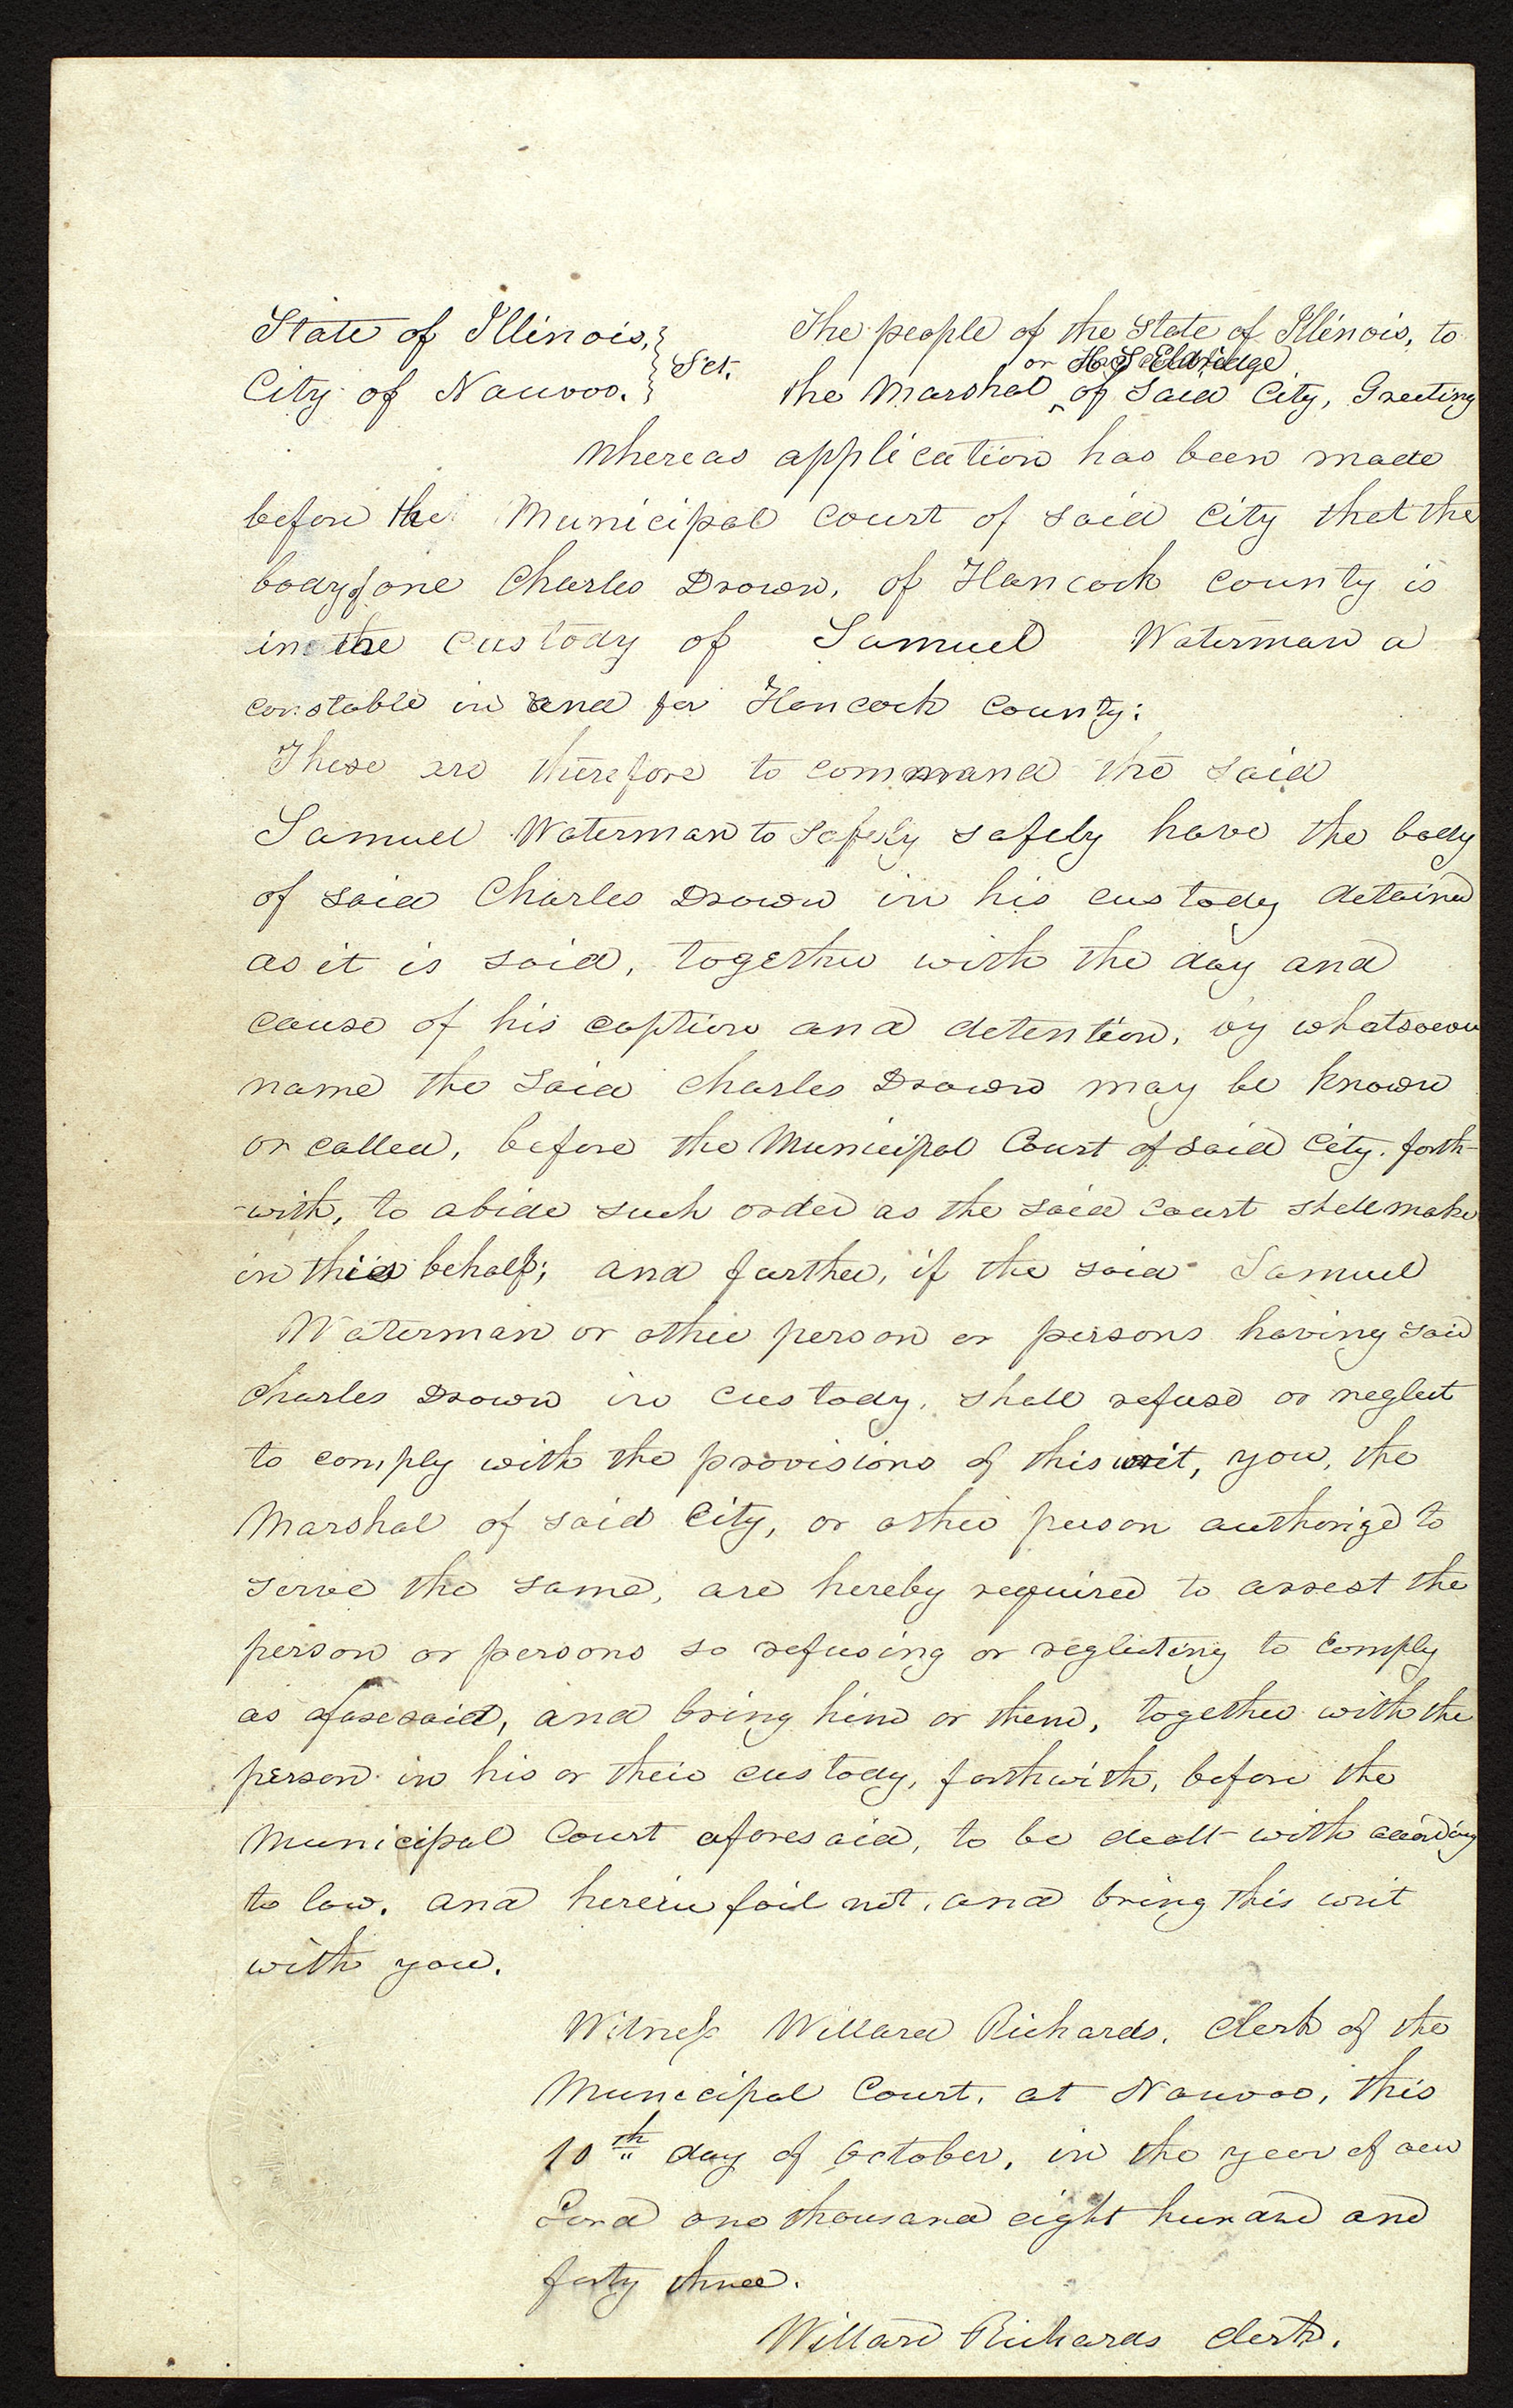 State of Illinois, } The people of the State of Illinois, to
} Sct. or H S Eldridge
City of Nauvoo. } the Marshal ‸ of said City, Greeting
Whereas application has been made
before the Municipal Court of said City that the
body of one Charles Drown, of Hancock County is
in the custody of Samuel Waterman a
constable in and for Hancock County:
These are therefore to command the said
Samuel Waterman to safely safely have the body
of said Charles Drown in his custody detained
as it is said, together with the day and
cause of his caption and detention, by whatsoever
name the said Charles Drown may be known
or called, before the Municipal Court of said City. forth-
-with, to abide such order as the said court shall make
in this behalf; and further, if the said Samuel
Waterman or other person or persons having said
Charles Drown in custody, shall refuse or neglect
to comply with the provisions of this writ, you, the
Marshal of said City, or other person authorized to
serve the same, are hereby required to arrest the
person or persons so refusing or neglecting to comply
as aforesaid, and bring him or them, together with the
person in his or their custody, forthwith, before the
Municipal Court aforesaid, to be dealt with according
to law. and herein fail not, and bring this writ
with you.
Witness Willard Richards, Clerk of the
Municipal Court, at Nauvoo, this
10th day of October, in the year of our
Lord one thousand eight hundred and
forty three.
Willard Richards Clerk.